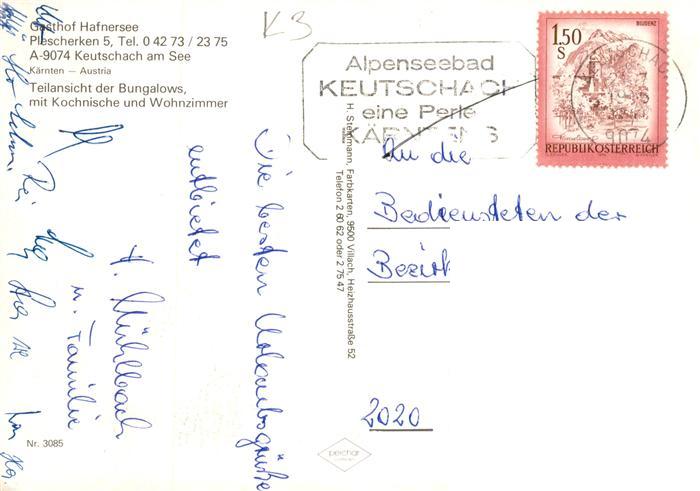 Gasthof Hafnersee
Plescherken 5, Tel. 0 42 73 / 23 75
A-9074 Keutschach am See
Kärnten – Austria
Teilansicht der Bungalows,
mit Kochnische und Wohnzimmer
K3
Alpenseebad
KEUTSCHACH
eine Perle
KÄRNTENS
9074
1.50
S
BLUDENZ
REPUBLIK ÖSTERREICH
Die besten Urlaubsgrüße
entbietet
H. Mühlbach
u. Familie
H. Steinmann, Farbkarten, 9500 Villach, Heizhausstraße 52
Telefon 2 60 62 oder 2 75 47
An die
Bediensteten der
Bezirk
2020
Nr. 3085